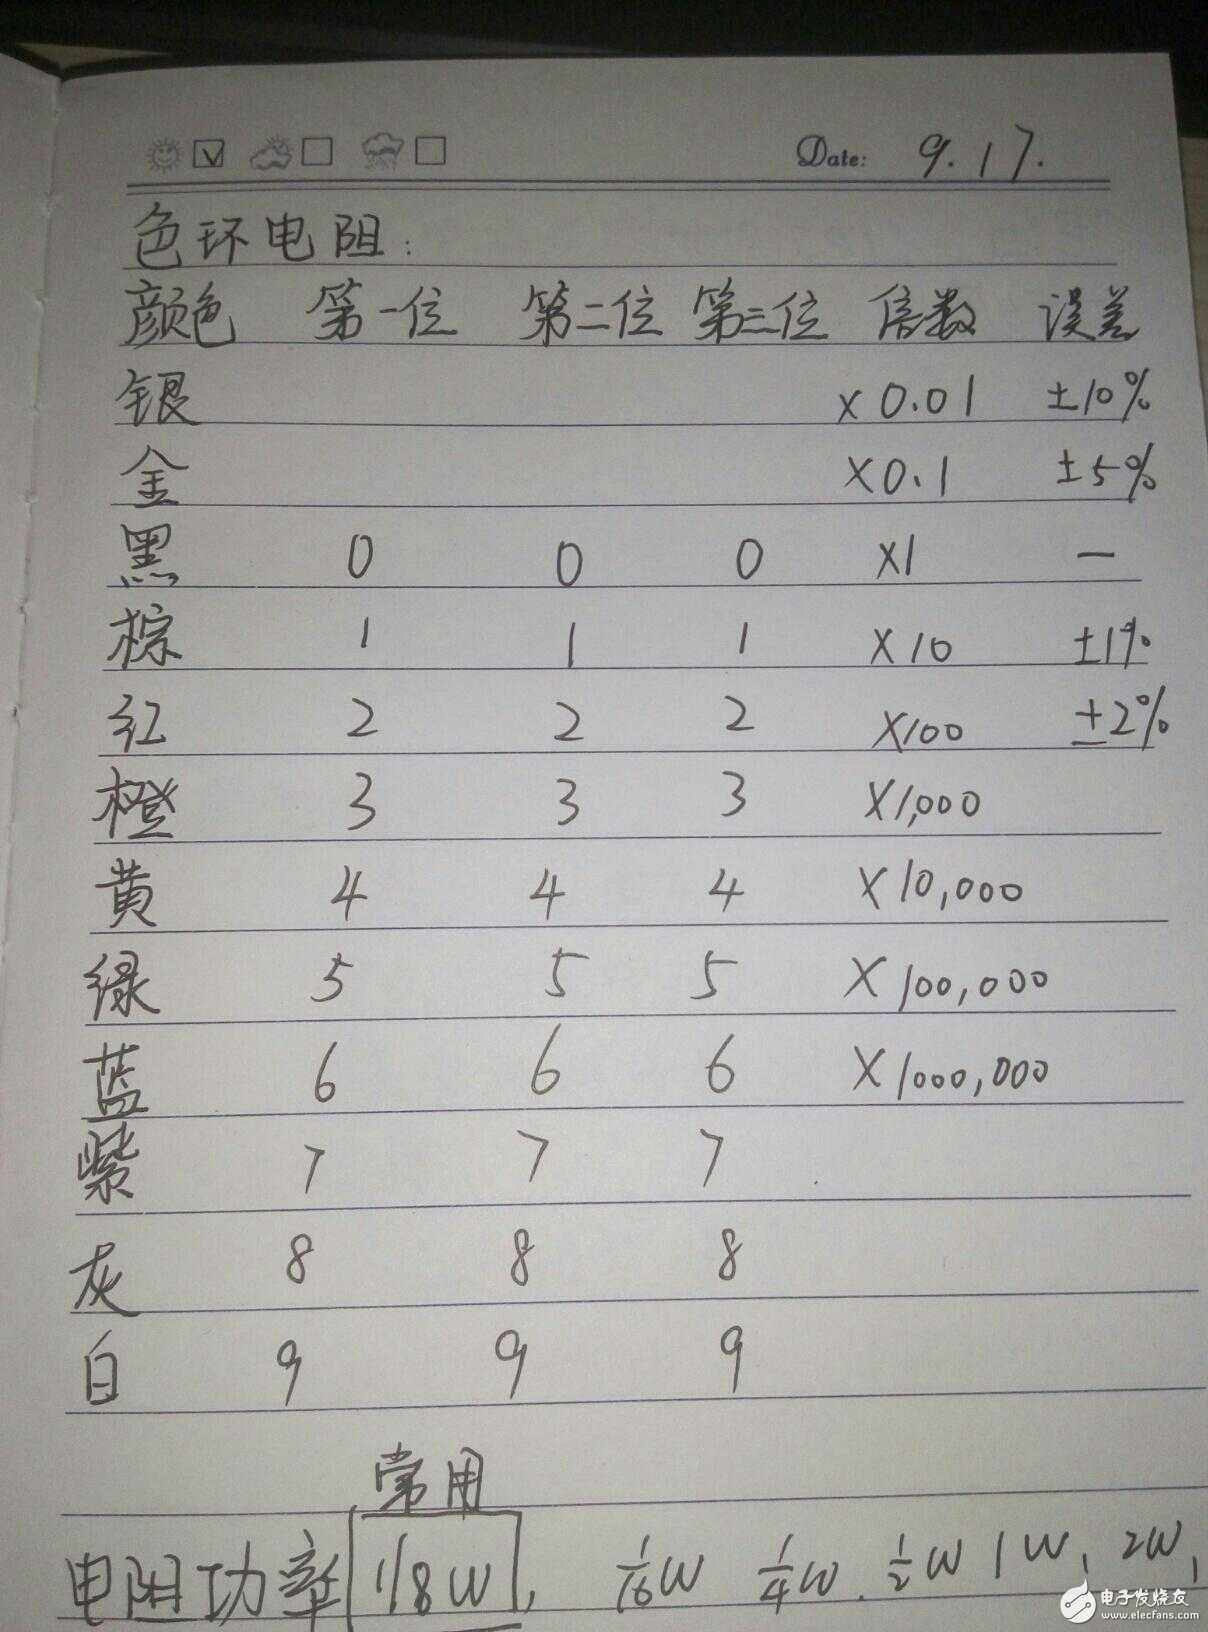 Date: 9.17.
色环电阻:
颜色 第一位 第二位 第三位 倍数 误差
银 ×0.01 ±10%
金 ×0.1 ±5%
黑 0 0 0 ×1 —
棕 1 1 1 ×10 ±1%
红 2 2 2 ×100 ±2%
橙 3 3 3 ×1,000
黄 4 4 4 ×10,000
绿 5 5 5 ×100,000
蓝 6 6 6 ×1000,000
紫 7 7 7
灰 8 8 8
白 9 9 9
常用
电阻功率 1/8W, 1/16W 1/4W. 1/2W 1W, 2W,
电子发烧友
www.elecfans.com